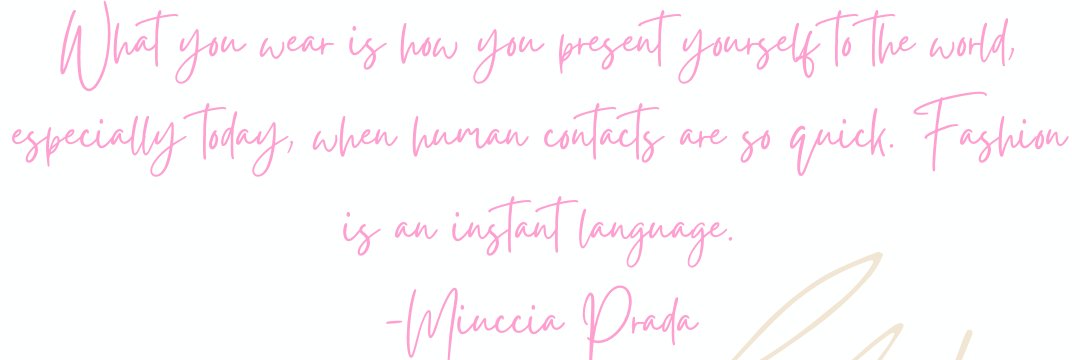 What you wear is how you present yourself to the world,
especially today, when human contacts are so quick. Fashion
is an instant language.
-Miuccia Prada